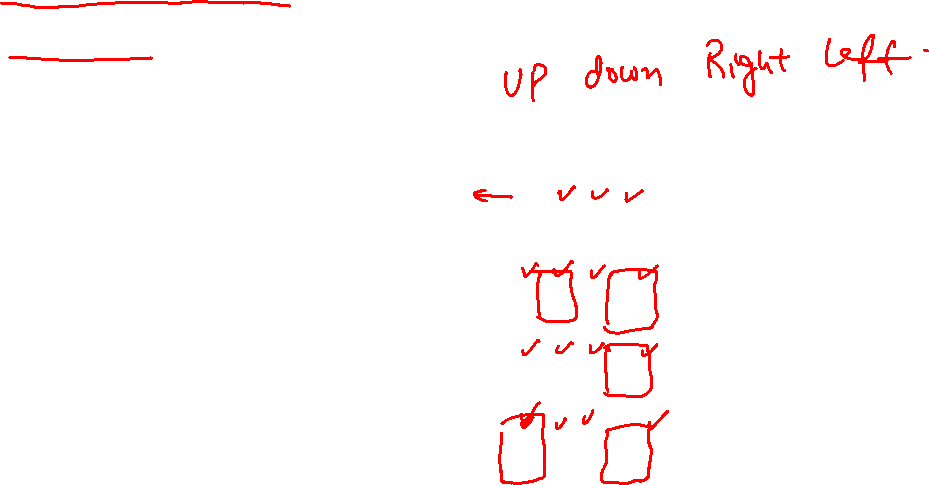 UP down Right Left
← ✓ ✓ ✓
✓ ✓ ✓ ✓
✓ ✓ ✓ ✓
✓ ✓ ✓ ✓